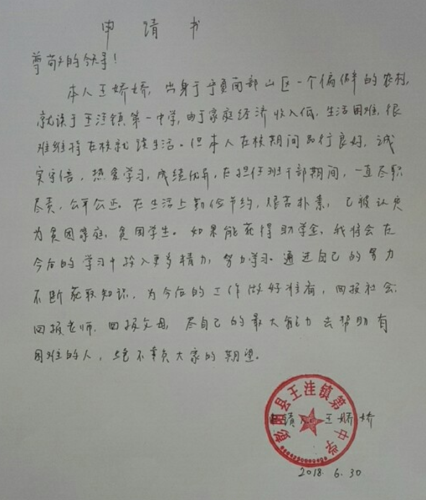 申请书
尊敬的领导！
本人王娇娇，出身于宁夏南部山区一个偏僻的农村，
就读于王洼镇第一中学，由于家庭经济收入低，生活困难，很
难维持在校就读生活。但本人在校期间品行良好，诚
实守信，热爱学习，成绩优异，在担任班干部期间，一直尽职
尽责，公平公正，在生活上勤俭节约，艰苦朴素，已被认定
为贫困家庭，贫困学生。如果能获得助学金，我将会在
今后的学习中投入更多精力，努力学习。通过自己的努力
不断获取知识，为今后的工作做好准备，回报社会，
回报老师，回报父母，尽自己的最大能力去帮助有
困难的人，绝不辜负大家的期望。
彭阳县王洼镇第一中学
申请人 王娇娇
2018.6.30